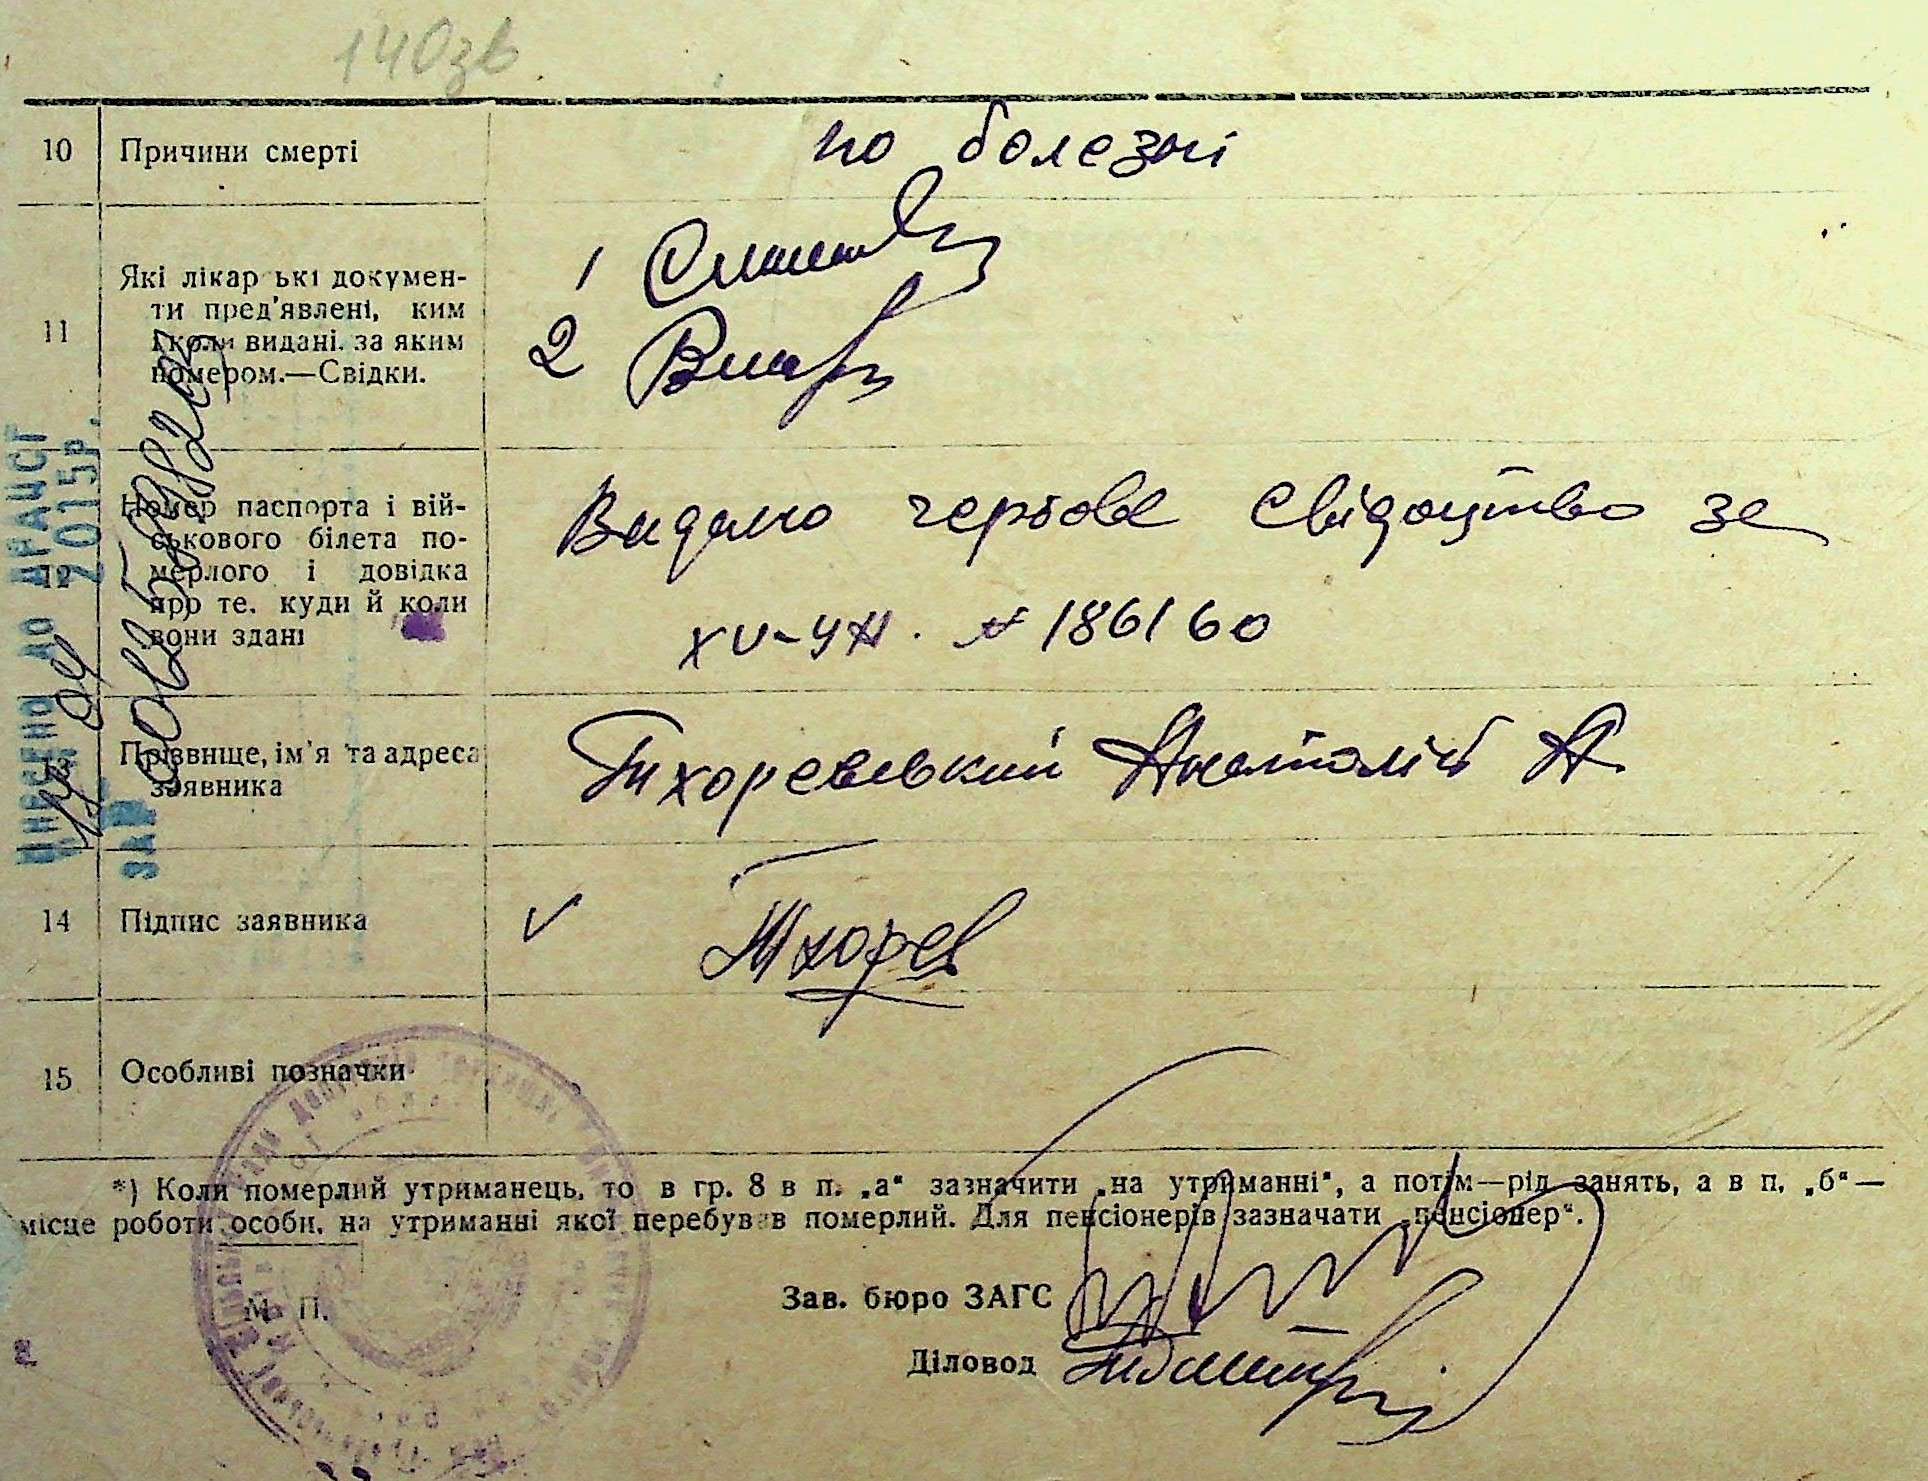 140зв
10 Причини смерті по болезні
11 Які лікар ькі докумен-
ти пред'явлені, ким
і коли видані. за яким
номером.—Свідки.
1
2
12 Номер паспорта і вій-
ськового білета по-
мерлого і довідка
про те. куди й коли
вони здані
Видано чергове свідоцтво за
XV-УЯ. № 186160
13 Прізвище, ім'я та адреса
заявника
Тихоревський Анатолій А.
14 Підпис заявника ✓ Тихорев
15 Особливі позначки
*) Коли померлий утриманець, то в гр. 8 в п. „а“ зазначити „на утриманні“, а потім—рід занять, а в п. „б“—
місце роботи особи, на утриманні якої перебував померлий. Для пенсіонерів зазначати „пенсіонер“.
М. П.
Зав. бюро ЗАГС
Діловод
ВНЕСЕНО ДО ДРАЦСГ
17 04 2015р.
ЗА №